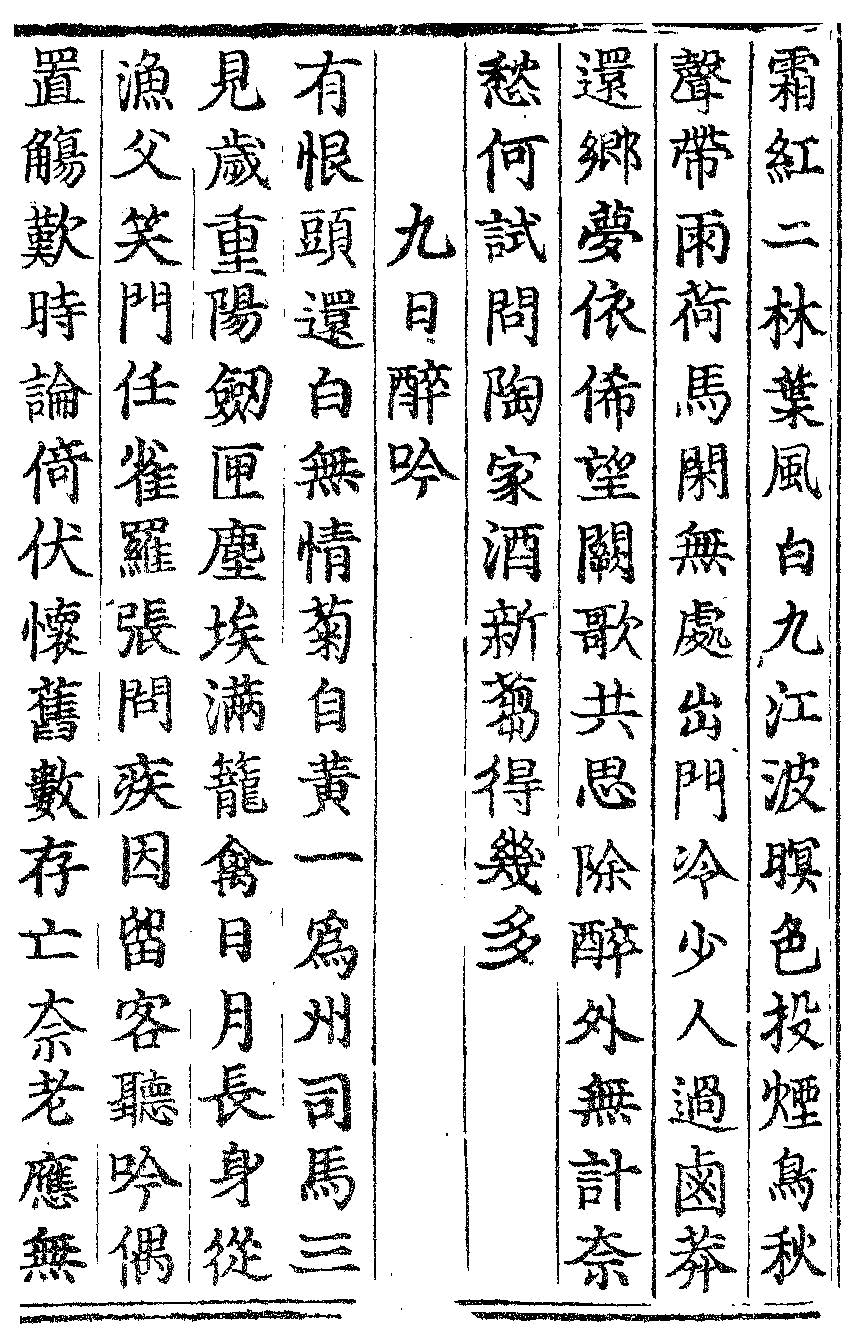 霜紅二林葉風白九江波暝色投煙鳥秋
聲帶雨荷馬閑無處出門冷少人過鹵莽
還鄉夢依俙望闕歌共思除醉外無計奈
愁何試問陶家酒新蒭得幾多
九日醉吟
有恨頭還白無情菊自黃一爲州司馬三
見歲重陽劒匣塵埃滿籠禽日月長身從
漁父笑門任雀羅張問疾因留客聽吟偶
置觴歎時論倚伏懷舊數存亡奈老應無